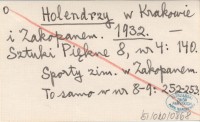 Holendrzy w Krakowie
i Zakopanem. 1932. —
Sztuki Piękne 8, nr 4: 140.
Sporty zim. w Zakopanem.
To samo w nr 8-9: 252-253.